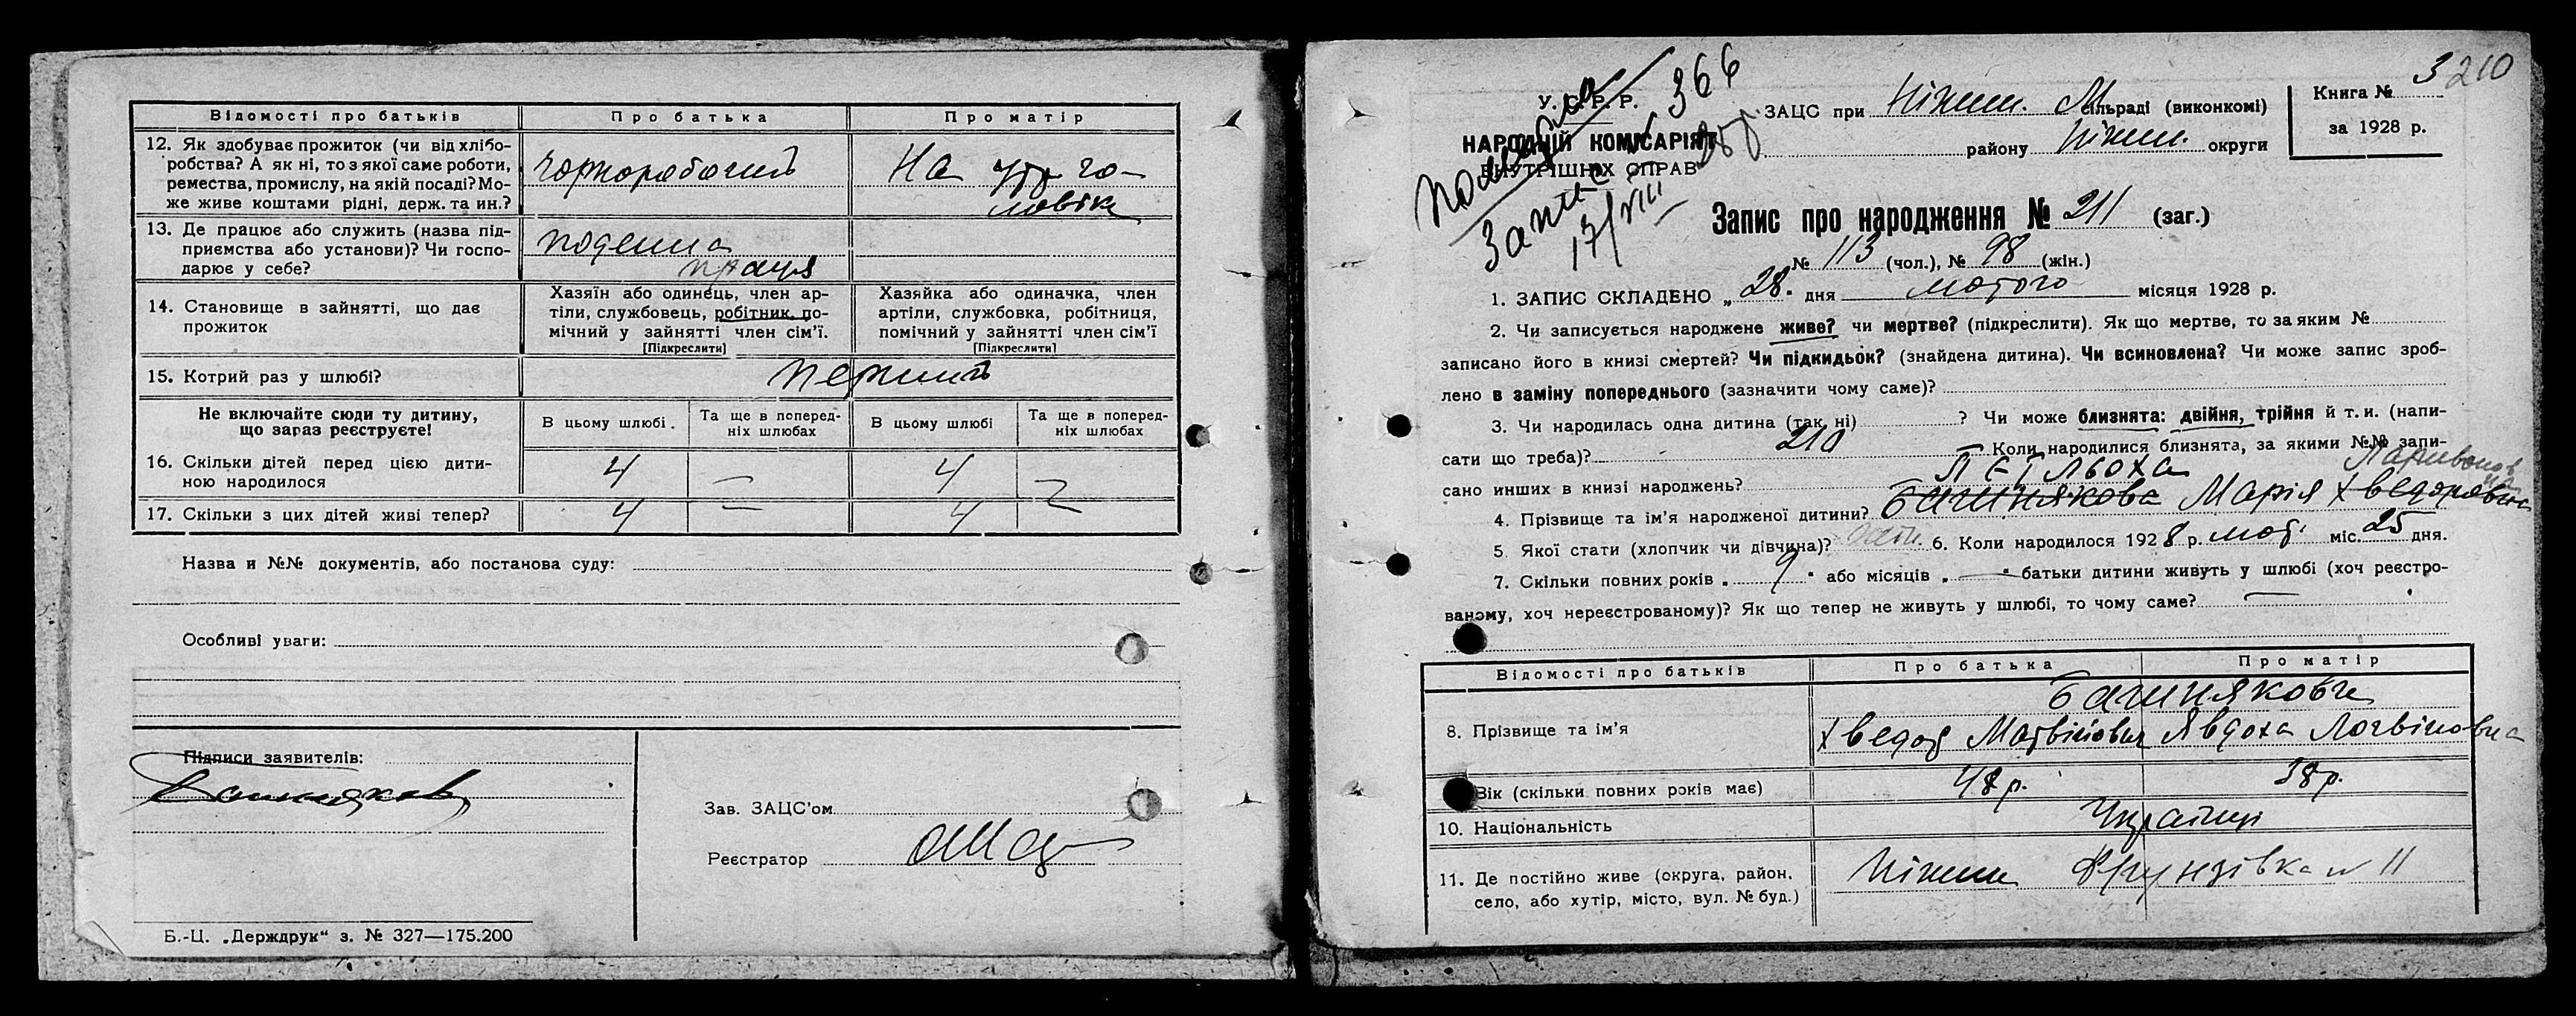 Відомості про батьків
Про батька
Про матір
12. Як здобуває прожиток (чи від хлібо-
робства? А як ні, то з якої саме роботи,
ремества, промислу, на якій посаді? Мо-
же живе коштами рідні, держ. та ин.?
чорноробочий
На утр чо-
ловіка
13. Де працює або служить (назва під-
приємства або установи)? Чи госпо-
дарює у себе?
поденна
праця
14. Становище в зайнятті, що дає
прожиток
Хазяїн або одинець, член ар-
тіли, службовець, робітник, по-
мічний у зайнятті член сім’ї.
[Підкреслити]
Хазяйка або одиначка, член
артіли, службовка, робітниця,
помічний у зайнятті член сім’ї
[Підкреслити]
15. Котрий раз у шлюбі?
перший
Не включайте сюди ту дитину,
що зараз реєструєте!
В цьому шлюбі.
Та ще в поперед-
ніх шлюбах
В цьому шлюбі
Та ще в поперед-
ніх шлюбах
16. Скільки дітей перед цією дити-
ною народилося
4 — 4 —
17. Скільки з цих дітей живі тепер?
4 — 4 —
Назва и №№ документів, або постанова суду:
Особливі уваги:
Підписи заявителів:
Зав. ЗАЦС’ом
Реєстратор
Б.-Ц. „Держдрук“ з. № 327—175.200
У. С. Р. Р.
НАРОДНІЙ КОМІСАРІЯТ
ВНУТРІШНІХ СПРАВ
366
17/VIII
ЗАЦС при Ніжин. М сільраді (виконкомі)
району Ніжин. округи
Книга № 3
210
за 1928 р.
Запис про народження № 211 (заг.)
№ 113 (чол.), № 98 (жін.)
1. ЗАПИС СКЛАДЕНО „28“ дня лютого місяця 1928 р.
2. Чи записується народжене живе? чи мертве? (підкреслити). Як що мертве, то за яким №
записано його в книзі смертей? Чи підкидьок? (знайдена дитина). Чи всиновлена? Чи може запис зроб-
лено в заміну попереднього (зазначити чому саме)?
3. Чи народилась одна дитина (так, ні) ? Чи може близнята: двійня, трійня й т. и. (напи-
сати що треба)? 210 Коли народилися близнята, за якими №№ запи-
сано инших в книзі народжень?
ПЄТЛЬОХА
4. Прізвище та ім’я народженої дитини? Башнякова Марія Хведоровна
5. Якої стати (хлопчик чи дівчина)? 6. Коли народилося 1928 р. лют. міс. 25 дня.
7. Скільки повних років „9“ або місяців „—“ батьки дитини живуть у шлюбі (хоч реєстро-
ваному, хоч нереєстрованому)? Як що тепер не живуть у шлюбі, то чому саме? —
Відомості про батьків
Про батька
Про матір
8. Прізвище та ім’я
Башнякови
Хведор Матвійович Явдоха Логвіновна
Вік (скільки повних років має)
48 р. 38 р.
10. Національність
Українці
11. Де постійно живе (округа, район,
село, або хутір, місто, вул. № буд.)
Ніжин Фрунзівка № 11